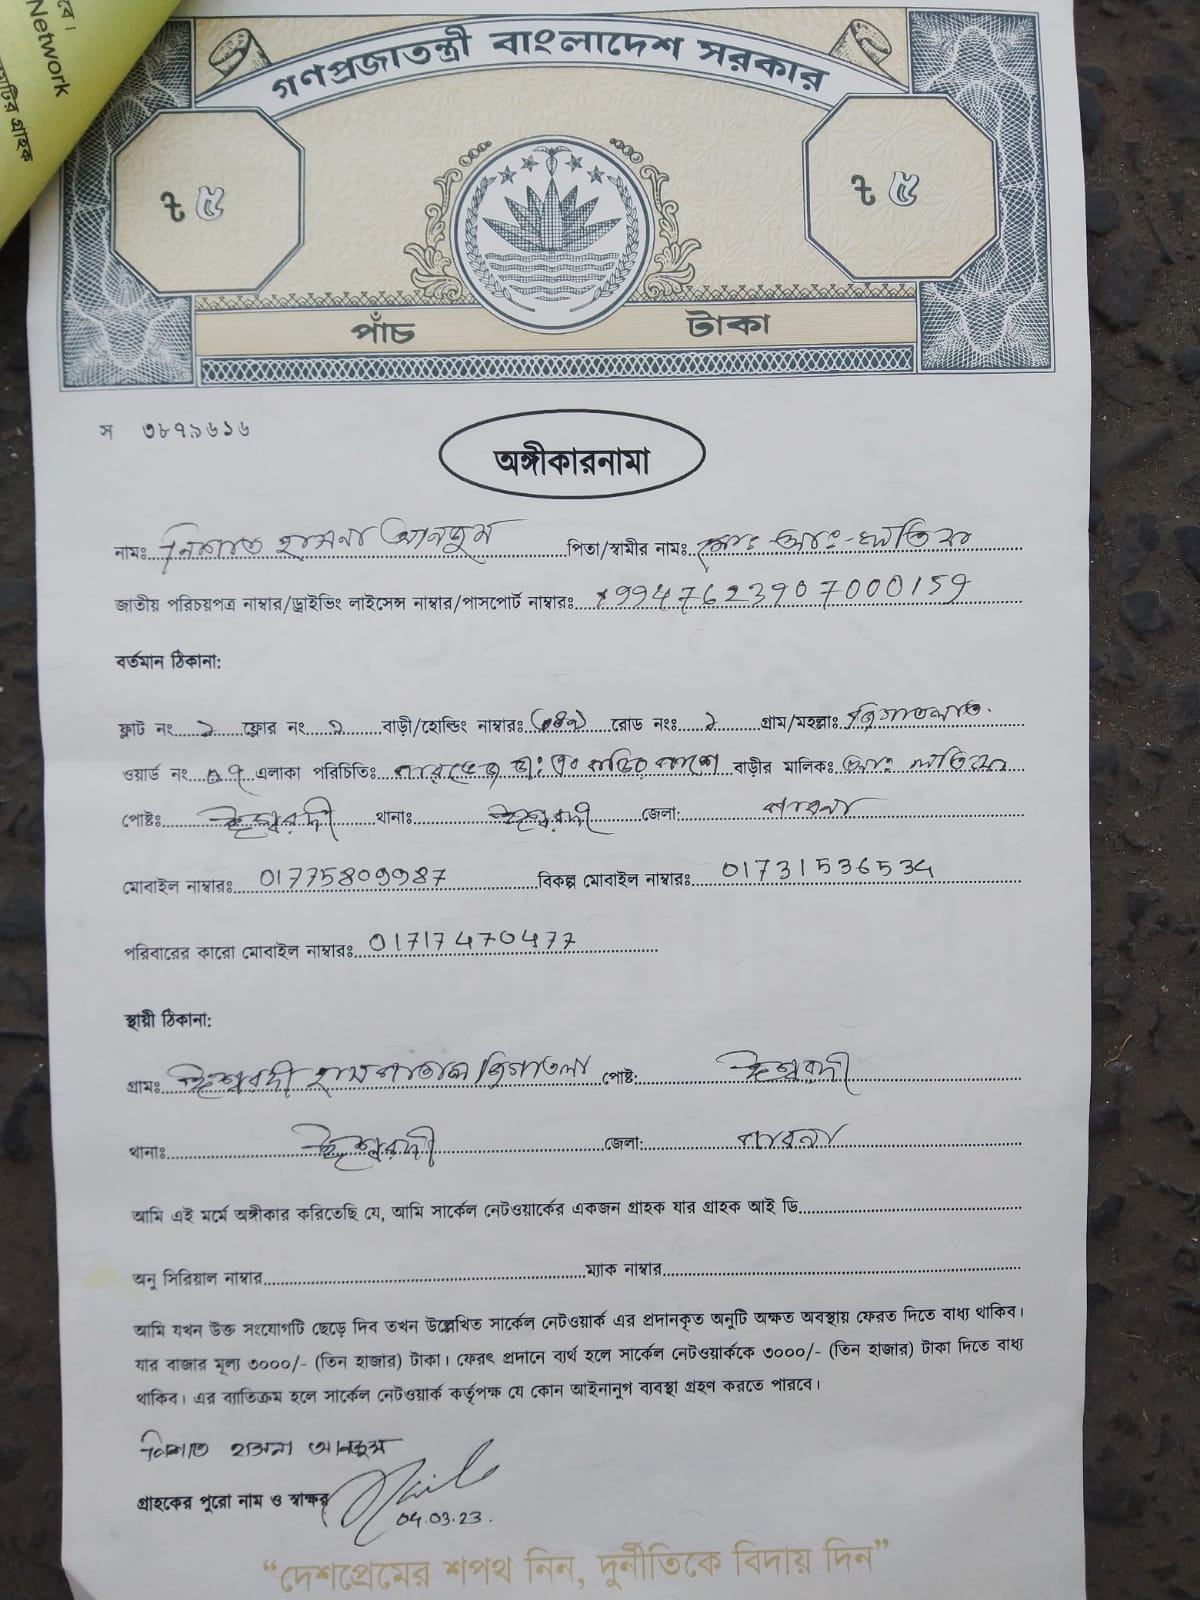 বে।
Network
মাটির গ্রাহক
গণপ্রজাতন্ত্রী বাংলাদেশ সরকার
৳ ৫ ৳ ৫
পাঁচ টাকা
স ৩৮৭৯৬১৬
অঙ্গীকারনামা
নামঃ নিশাত হাসনা আনজুম পিতা/স্বামীর নামঃ মোঃ আঃ লতিফ
জাতীয় পরিচয়পত্র নাম্বার/ড্রাইভিং লাইসেন্স নাম্বার/পাসপোর্ট নাম্বারঃ 19947623907000159
বর্তমান ঠিকানা:
ফ্লাট নং ১ ফ্লোর নং ২ বাড়ী/হোল্ডিং নাম্বারঃ রোড নংঃ ১ গ্রাম/মহল্লাঃ
ওয়ার্ড নং এলাকা পরিচিতিঃ বাড়ীর মালিকঃ আঃ লতিফ
পোষ্টঃ ঈশ্বরদী থানাঃ ঈশ্বরদী জেলা: পাবনা
মোবাইল নাম্বারঃ 01775809987 বিকল্প মোবাইল নাম্বারঃ 01731536534
পরিবারের কারো মোবাইল নাম্বারঃ 01717470477
স্থায়ী ঠিকানা:
গ্রামঃ ঈশ্বরদী হাসপাতাল পোষ্ট: ঈশ্বরদী
থানাঃ ঈশ্বরদী জেলা: পাবনা
আমি এই মর্মে অঙ্গীকার করিতেছি যে, আমি সার্কেল নেটওয়ার্কের একজন গ্রাহক যার গ্রাহক আই ডি
অনু সিরিয়াল নাম্বার ম্যাক নাম্বার
আমি যখন উক্ত সংযোগটি ছেড়ে দিব তখন উল্লেখিত সার্কেল নেটওয়ার্ক এর প্রদানকৃত অনুটি অক্ষত অবস্থায় ফেরত দিতে বাধ্য থাকিব।
যার বাজার মূল্য ৩০০০/- (তিন হাজার) টাকা। ফেরৎ প্রদানে ব্যর্থ হলে সার্কেল নেটওয়ার্ককে ৩০০০/- (তিন হাজার) টাকা দিতে বাধ্য
থাকিব। এর ব্যতিক্রম হলে সার্কেল নেটওয়ার্ক কর্তৃপক্ষ যে কোন আইনানুগ ব্যবস্থা গ্রহণ করতে পারবে।
নিশাত হাসনা আনজুম
গ্রাহকের পুরো নাম ও স্বাক্ষর
04.03.23.
“দেশপ্রেমের শপথ নিন, দুর্নীতিকে বিদায় দিন”